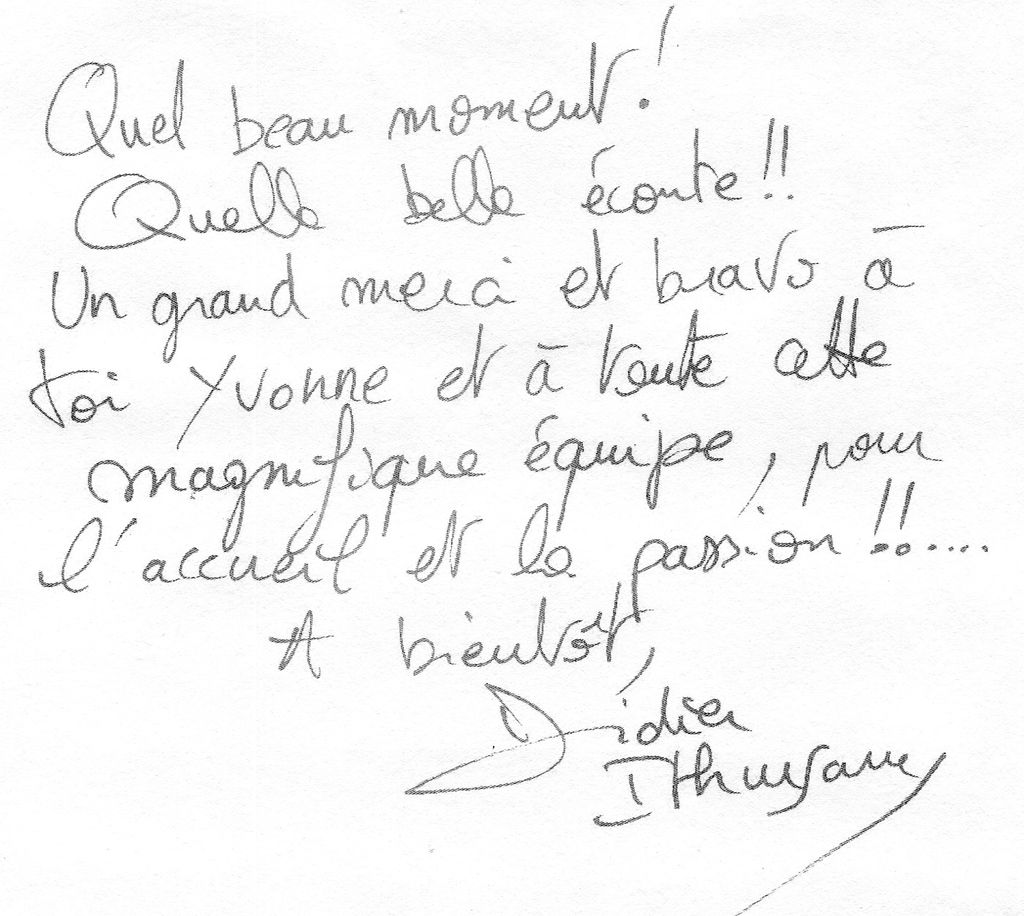 Quel beau moment!
Quelle belle écoute!!
Un grand merci et bravo à
toi Yvonne et à toute cette
magnifique équipe, pour
l'accueil et la passion!!.....
A bientôt,
Didier
Ithursarry